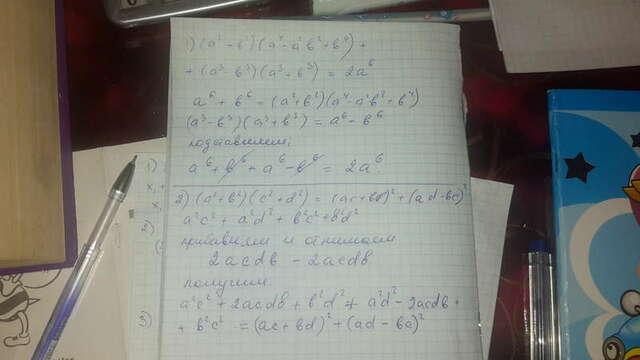 1) (a² - b²)(a⁴ - a²b² + b⁴) +
+ (a³ - b³)(a³ + b³) = 2a⁶
a⁶ + b⁶ = (a² + b²)(a⁴ - a²b² + b⁴)
(a³ - b³)(a³ + b³) = a⁶ - b⁶
подставляем:
a⁶ + b⁶ + a⁶ - b⁶ = 2a⁶.
2) (a² + b²)(c² + d²) = (ac + bd)² + (ad - bc)²
a²c² + a²d² + b²c² + b²d²
прибавляем и отнимаем
2acdb - 2acdb
получим
a²c² + 2acdb + b²d² + a²d² - 2acdb +
+ b²c² = (ac + bd)² + (ad - bc)²
1)
2)
3)